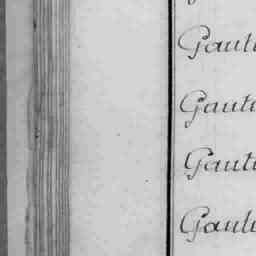 Gaut
Gaut
Gaut
Gaut